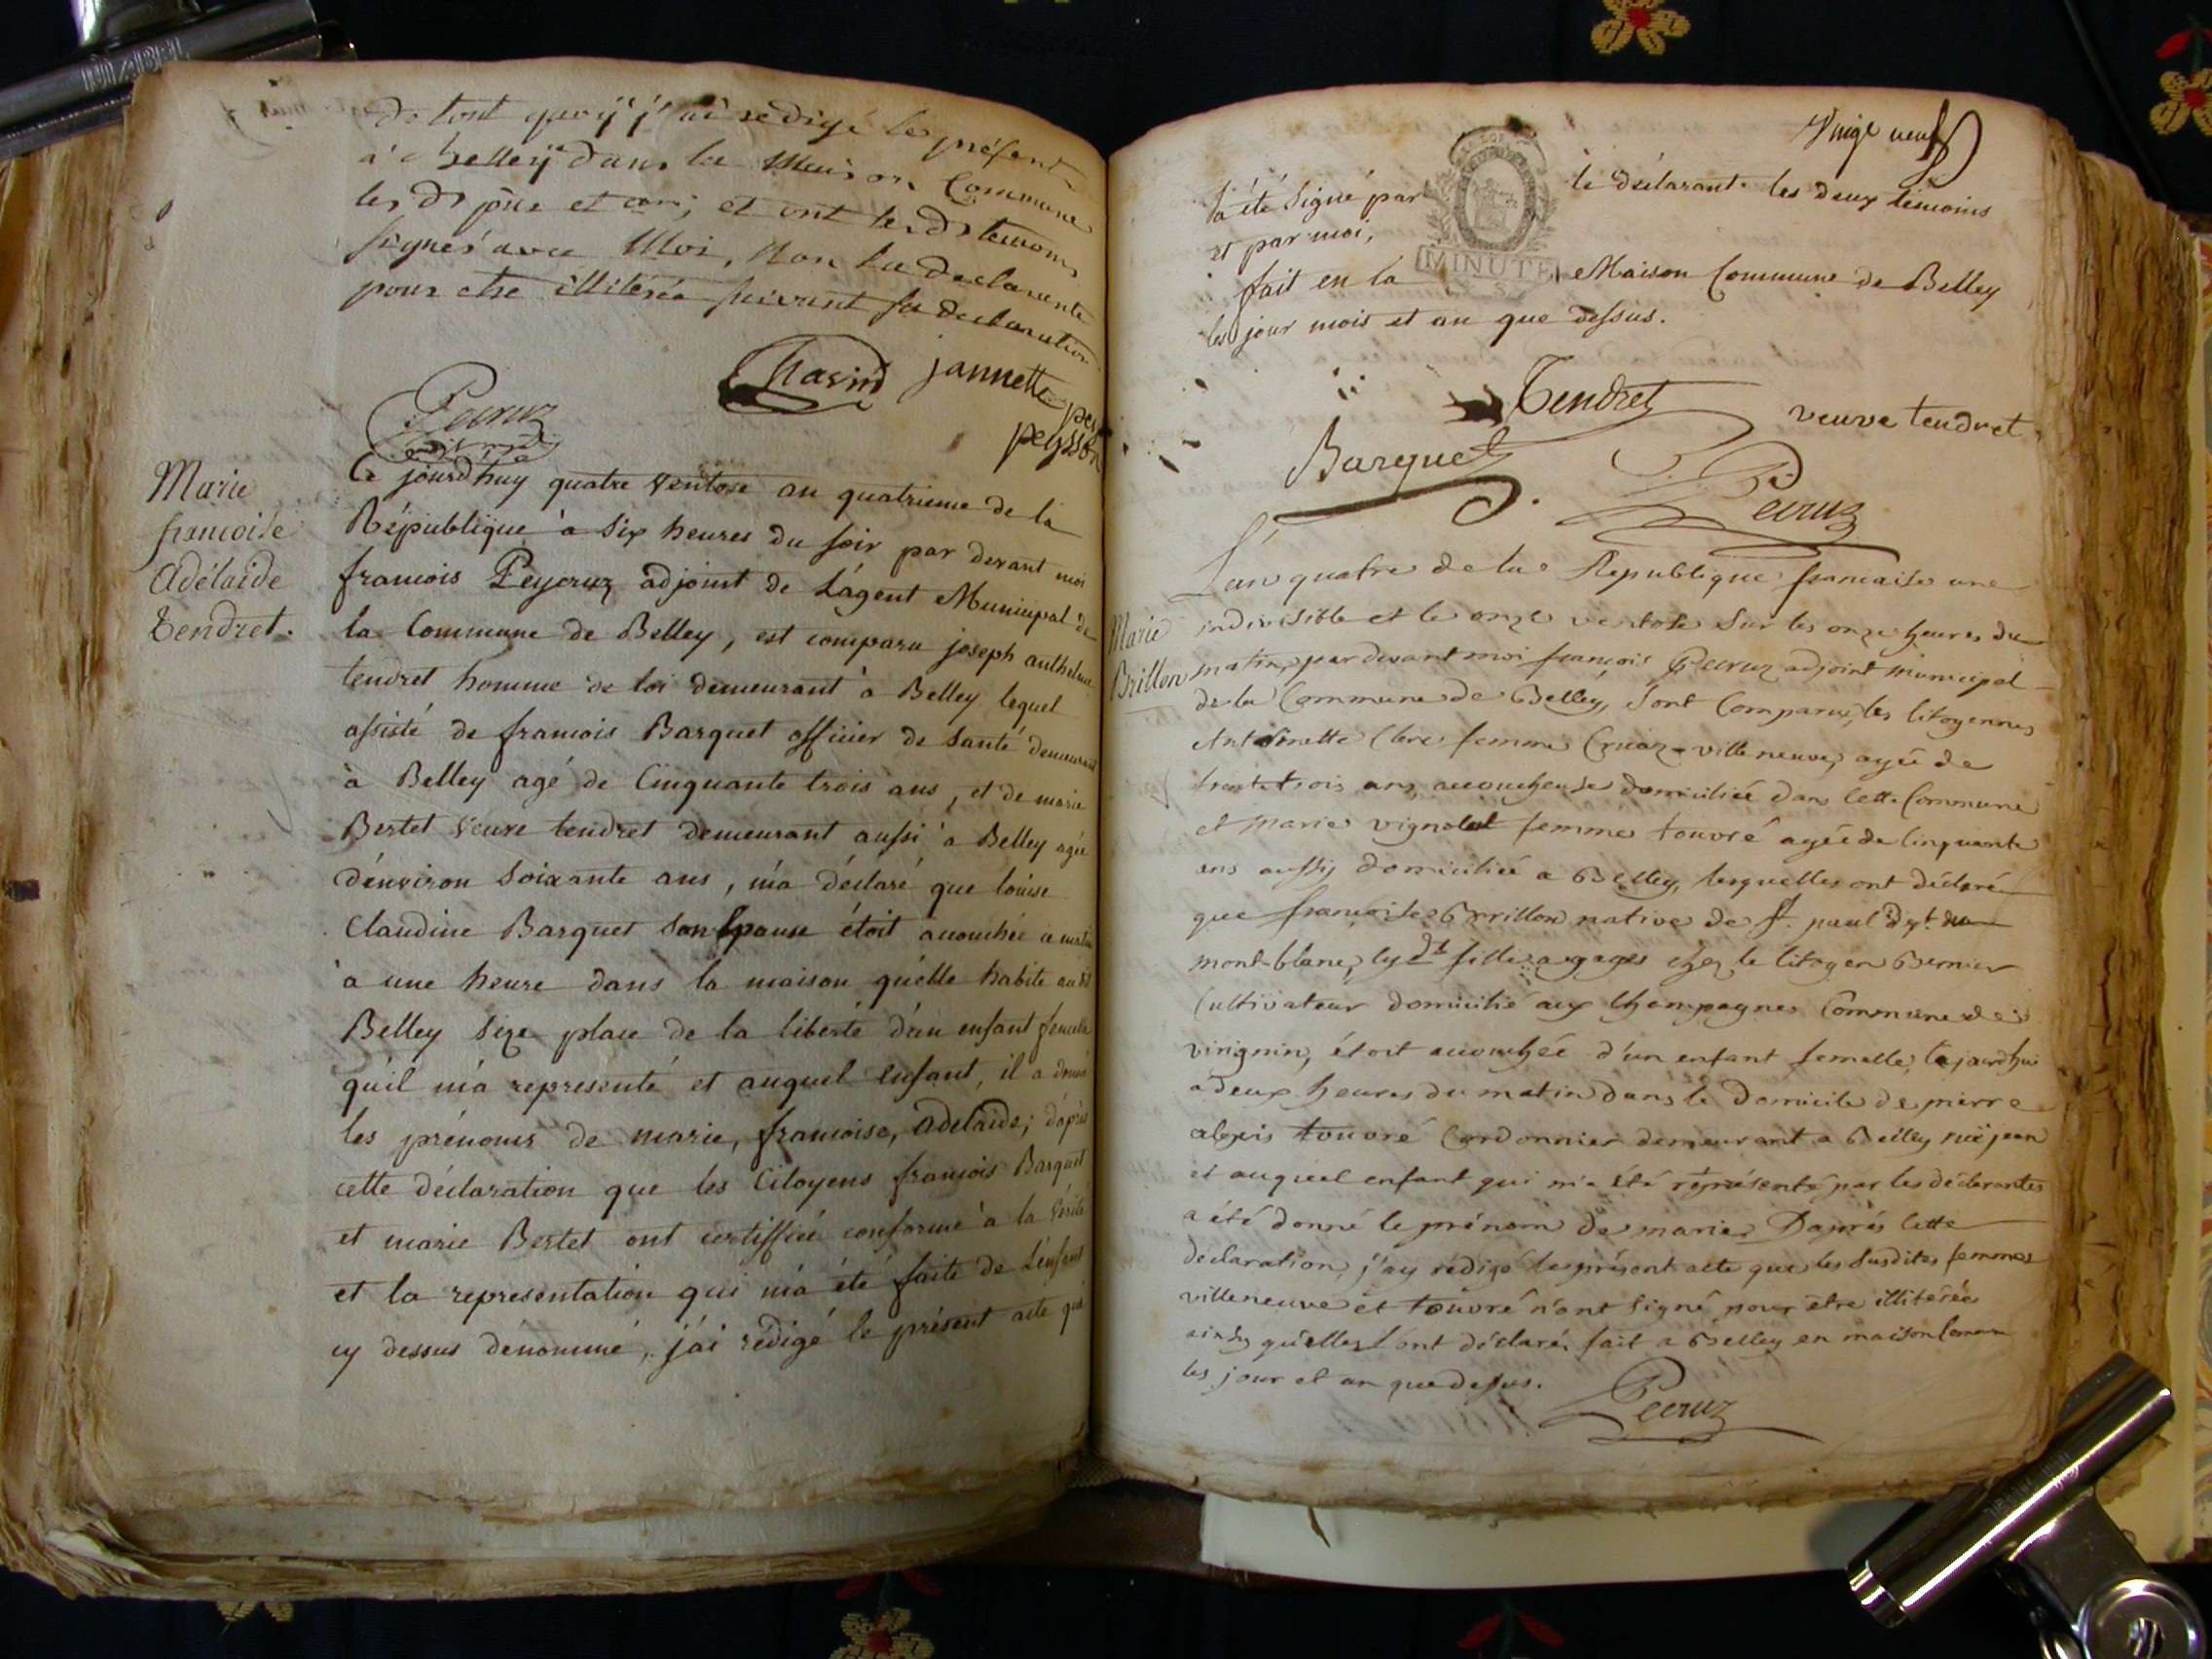 de tout quoy j'ai redigé le présent
à Belleÿ dans la Maison Commune
les ds jour et an, et ont les ds temoins
signés avec Moi, Non la declarante
pour etre illiterée suivant sa declaration
jannette
peysson
Pecruz
Marie
francoise
Adélaide
Tendret.
Ce jourdhuy quatre Ventose an quatrieme de la
République à six heures du soir par devant moi
francois Peycruz adjoint de L'agent Municipal de
la Commune de Belley, est comparu joseph anthelme
tendret homme de loi demeurant à Belley lequel
assisté de francois Barquet officier de santé demeurant
à Belley agé de Cinquante trois ans, et de marie
Bertet veuve tendret demeurant aussi à Belley agée
d'environ soixante ans, m'a déclaré que louise
Claudine Barquet son Epouse étoit accouchée ce matin
à une heure dans la maison qu'elle habite audit
Belley size place de la liberté d'un enfant femelle
qu'il m'a representé et auquel enfant, il a donné
les prénoms de marie, francoise, adelaide; d'après
cette déclaration que les Citoyens francois Barquet
et marie Bertet ont certiffiée conforme à la vérité
et la representation qui m'a été faite de L'enfant
cy dessus dénommé, j'ai redigé le présent acte qui
Vingt neuf
a été signé par le déclarant les deux témoins
et par moi,
MINUTE
fait en la Maison Commune de Belley
les jour mois et an que dessus.
Tendret
veuve tendret
Barquet
Pecruz
Marie
Brillon
L'an quatre de la Republique francaise une
indivisible et le onze ventose sur les onze heures du
matin, par devant moi françois Pecruz adjoint municipal
de la Commune de Belley, sont comparues les Citoyennes
Antoinette Clerc femme Cruaz-villeneuve, agée de
trente trois ans, accoucheuse domiciliée dans cette Commune
et marie vignolet femme touvré agée de cinquante
ans aussy domiciliée a Belley, lesquelles ont déclaré
que francoise Brillon native de St. paul dept. du
mont-blanc, lad.t fille a gages chez le Citoyen Bernier
Cultivateur domicilié aux Champagnes Commune de
virignin, étoit accouchée d'un enfant femelle, cejourdhui
a deux heures du matin dans le domicile de pierre
alexis touvré Cordonnier demeurant a Belley
et auquel enfant qui m'a été représenté par les déclarantes
a été donné le prénom de marie, D'après cette
declaration, j'ay rédigé le présent acte que les susdites femmes
villeneuve et touvré n'ont signé pour être illitérée
ainsy qu'elles l'ont déclaré, fait a Belley en maison Commune
les jour et an que dessus.
Pecruz